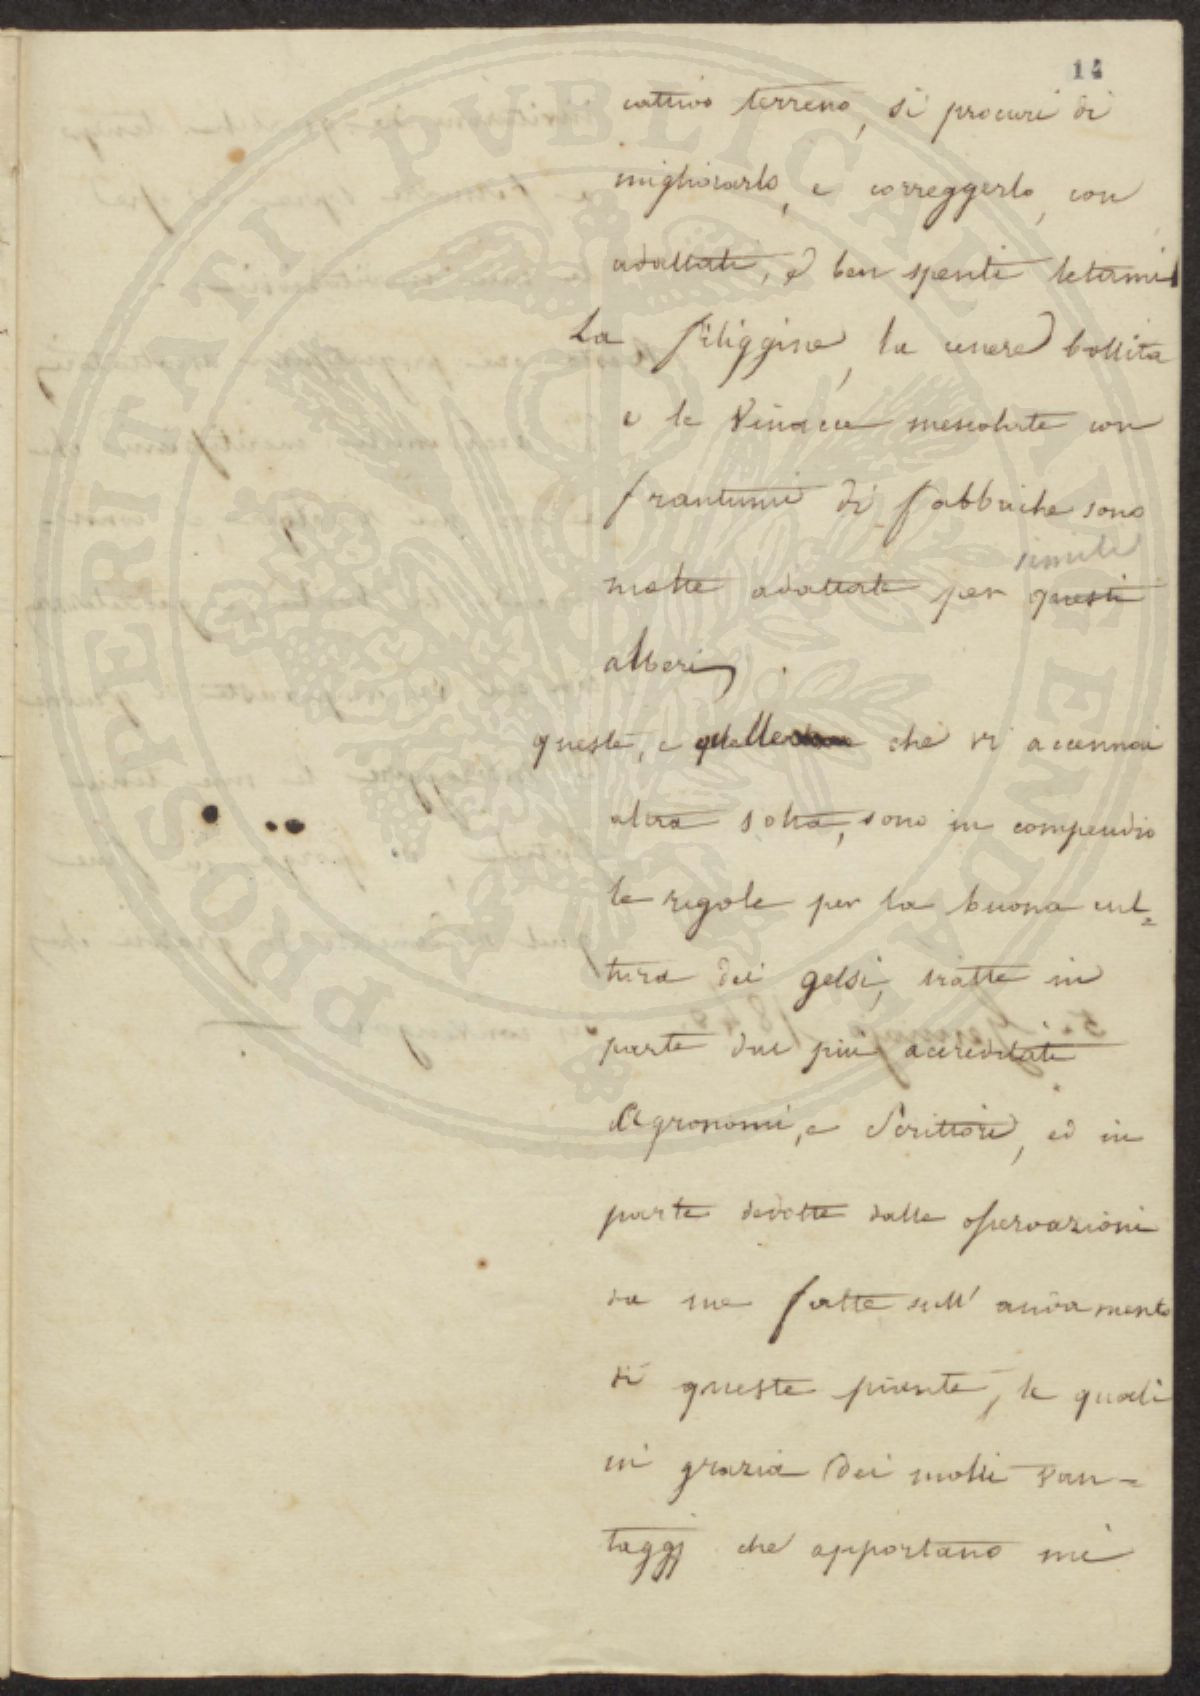 14
cattivo terreno, si procuri di
migliorarlo, e correggerlo, con
adattati, e ben spenti letami
La filiggine, la cenere bollita
e le Vinacce mescolate con
frantumi di fabbriche sono
simili
molte adattate per questi
alberi
queste, e quelle che vi accennai
altra volta, sono in compendio
le regole per la buona cul=
tura dei gelsi, tratte in
parte dai più accreditati
Agronomi, e Scrittori, ed in
parte dedotte dalle osservazioni
da me fatte sull'
di queste piante, le quali
in grazia dei molti van=
taggj che apportano mi
PROSPERITATI PUBLICAE AVGENDAE